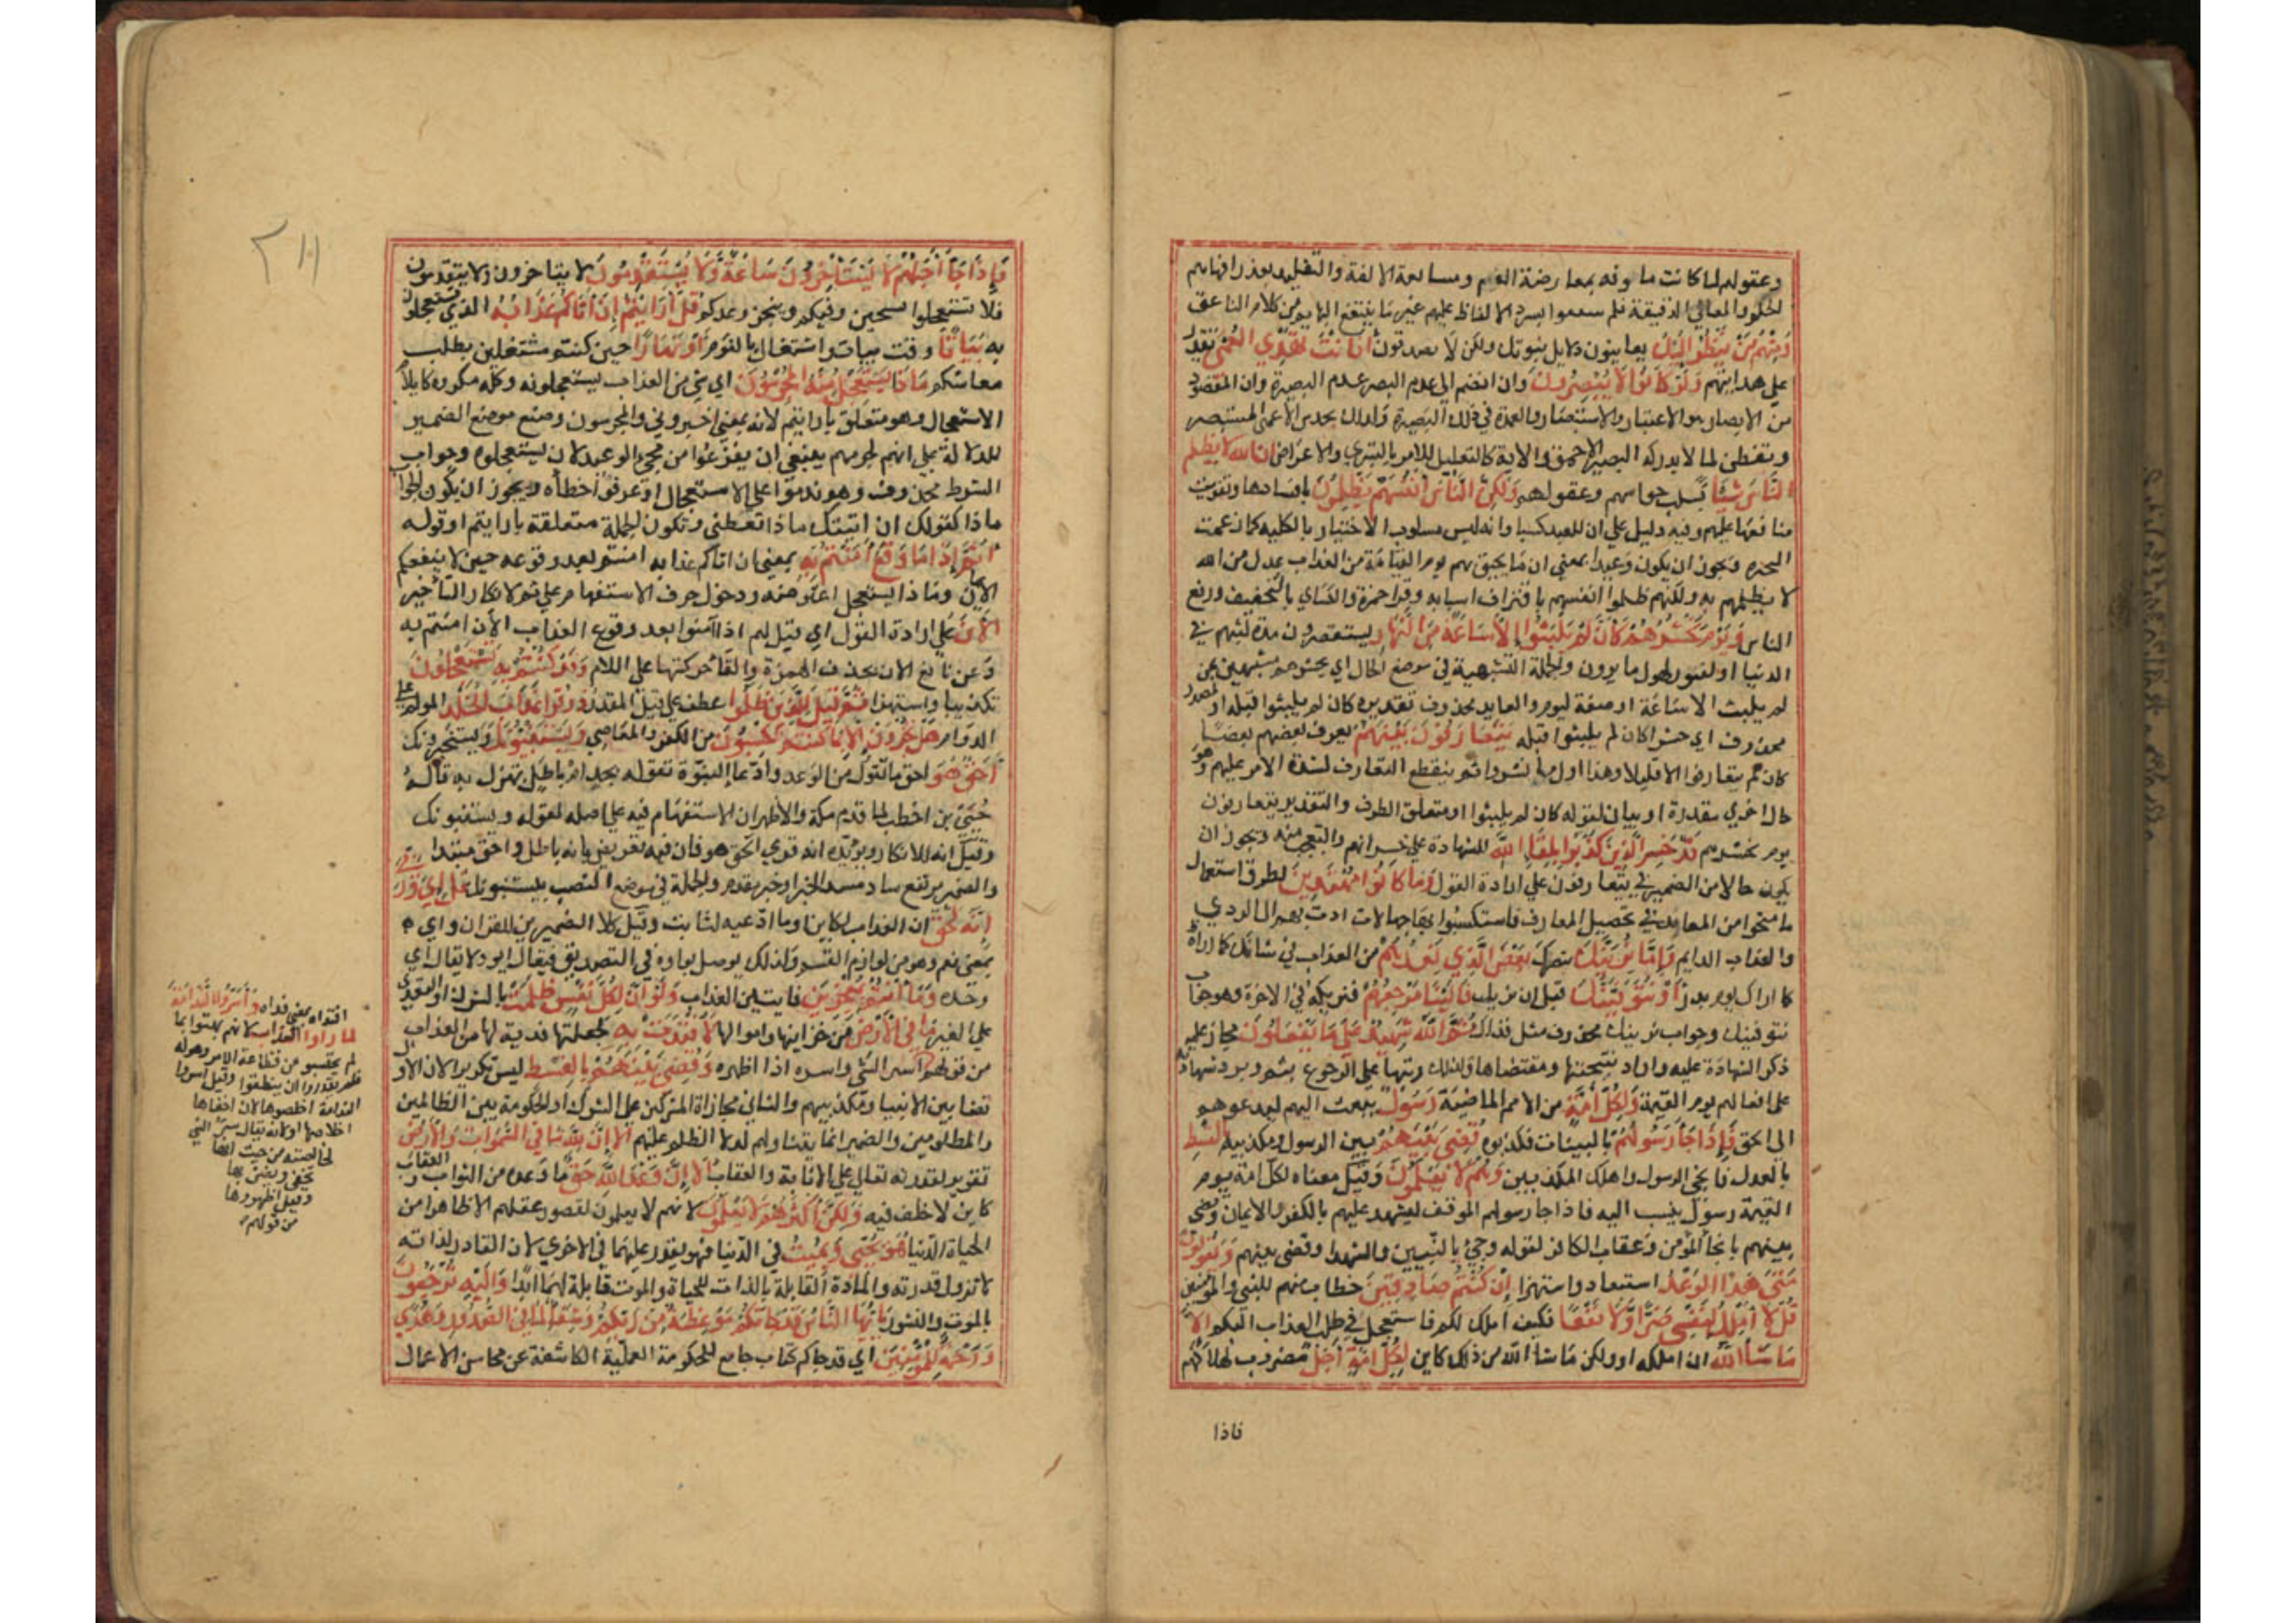 وعقولهم لما كانت ماوفه بمعارضة الوهم ومسابعة الالفة والتقليد بعذر افهامهم
الحكم والمعاني الدقيقة فلم ينتفعوا بسرد الالفاظ عليهم غير ما ينتفع البهايم من كلام الناعق
ومنهم من ينظر اليك يعاينون دلايل نبوتك ولكن لا يصدقون افانت تهدي العمي تقدر
على هدايتهم ولو كانوا لا يبصرون وان انضم الى عدم البصر عدم البصيرة وان المقصود
من الابصار هو الاعتبار والاستبصار والعمدة في ذلك البصيرة ولذلك يحدس الاعمى المستبصر
ويتفطن لما لا يدركه البصير الاحمق والاية كالتعليل للامر بالتبري والاعراض ان الله لا يظلم
الناس شيئا بسلب حواسهم وعقولهم ولكن الناس انفسهم يظلمون بافسادها وتفويت
منافعها عليهم وفيه دليل على ان للعبد كسبا وانه ليس مسلوب الاختيار بالكليه كما زعمت
المجبره ويجوز ان يكون وعيدا بمعنى ان ما يحيق بهم يوم القيامة من العذاب عدل من الله
لا يظلمهم به ولكنهم ظلموا انفسهم باقتراف اسبابه وقرا حمزة والكساي بالتخفيف ورفع
الناس ويوم نحشرهم كان لم يلبثوا الا ساعة من النهار يستقصرون مدة لبثهم في
الدنيا او القبور لهول ما يرون والجملة التشبهية في موضع الحال اي يحشرهم مشبهين بمن
لم يلبث الا ساعة او صفة ليوم والعايد محذوف تقديره كان لم يلبثوا قبله او لمصدر
محذوف اي حشرا كان لم يلبثوا قبله يتعارفون بينهم يعرف بعضهم بعضا
كان لم يتعارفوا الا قليلا وهذا اول ما نشروا ثم ينقطع التعارف لشدة الامر عليهم وهو
حال اخري مقدرة او بيان لقوله كان لم يلبثوا او متعلق الظرف والتقدير يتعارفون
يوم نحشرهم قد خسر الذين كذبوا بلقا الله للشهادة على خسرانهم والتعجب منه ويجوز ان
يكون حالا من الضمير في يتعارفون على ارادة القول وما كانوا مهتدين لطرق استعمال
ما منحوا من المعاون في تحصيل المعارف فاستكسبوا بها جهالات ادت بهم الى الردي
والعذاب الدايم واما نرينك نبصرك بعض الذي نعدهم من العذاب في حياتك كما اراه
كما اراك يوم بدر او نتوفينك قبل ان نريك فالينا مرجعهم فنريكه في الاخرة وهو جواب
نتوفينك وجواب نرينك محذوف مثل فذاك ثم الله شهيد على ما يفعلون مجاز عليه
ذكر الشهادة عليه واراد نتيجتها ومقتضاها ولذلك رتبها على الرجوع بثم او يريد شهادته
على افعالهم يوم القيمة ولكل امة من الامم الماضية رسول يبعث اليهم ليدعوهم
الى الحق فاذا جا رسولهم بالبينات فكذبوه قضى بينهم بين الرسول ومكذبيه بالقسط
بالعدل فانجي الرسول واهلك المكذبين وهم لا يظلمون وقيل معناه لكل امة يوم
القيمة رسول ينسب اليه فاذا جا رسولهم الموقف ليشهد عليهم بالكفر والايمان وقضى
بينهم بانجا المؤمن وعقاب الكافر لقوله وجيئ بالنبيين والشهدا وقضى بينهم ويقولون
متى هذا الوعد استبعادا واستهزا ان كنتم صادقين خطاب منهم للنبي والمؤمنين
قل لا املك لنفسي ضرا ولا نفعا فكيف املك لكم فاستعجل في طلب العذاب اليكم الا
ما شا الله ان املكه او ولكن ما شا الله من ذلك كاين لكل امة اجل مضروب لهلاكهم
فاذا
٢١١
فاذا جا اجلهم لا يستاخرون ساعة ولا يستقدمون لا يتاخرون ولا يتقدمون
فلا تستعجلوا فسيحين وقتكم وينجز وعدكم قل ارايتم ان اتاكم عذابه الذي تستعجلون
به بياتا وقت بيات واشتغال بالنوم او نهارا حين كنتم مشتغلين بطلب
معاشكم ماذا يستعجل منه المجرمون اي شي من العذاب يستعجلونه وكله مكروه لا يلايم
الاستعجال وهو متعلق بارايتم لانه بمعنى اخبروني والمجرمون وضع موضع الضمير
للدلالة على انهم لجرمهم ينبغي ان يفزعوا من مجي الوعيد لا ان يستعجلوه وجواب
الشرط محذوف وهو تندموا على الاستعجال او تعرفوا خطأه ويجوز ان يكون الجواب
ماذا كقولك ان اتيتك ماذا تعطني وتكون الجملة متعلقة بارايتم او قوله
اثم اذا ما وقع امنتم به بمعنى ان اتاكم عذابه امنتم بعد وقوعه حين لا ينفعكم
الايمان وماذا يستعجل اعتراض ودخول حرف الاستفهام على ثم لانكار التأخير
الان على ارادة القول اي قيل لهم اذا آمنوا بعد وقوع العذاب الان امنتم به
وعن نافع الان بحذف الهمزة والقا حركتها على اللام وقد كنتم به تستعجلون
تكذيبا واستهزا ثم قيل للذين ظلموا عطف على قيل المقدر ذوقوا عذاب الخلد المولم على
الدوام هل تجزون الا بما كنتم تكسبون من الكفر والمعاصي ويستنبئونك ويستخبرونك
احق هو احق ما تقول من الوعد وادعا النبوة تقوله بجد ام باطل تهزل به قاله
حيي بن اخطب لما قدم مكة والاظهر ان الاستفهام فيه على اصله لقوله ويستنبونك
وقيل انه للانكار ويؤيده انه قري الحق هو فان فيه تعريض بانه باطل واحق مبتدا
والضمير مرتفع ساد مسد الخبر او خبر مقدم والجملة في موضع النصب بيستنبونك قل اي وربي
انه لحق ان العذاب لكاين او ما ادعيه لثابت وقيل كلا الضميرين للقران واي
بمعنى نعم وهو من لوازم القسم ولذلك يوصل بواوه في التصديق فيقال ايو ولا يقال اي
وحده وما انتم بمعجزين فايتين العذاب ولو ان لكل نفس ظلمت بالشرك او التعدي
على الغير ما في الارض من خزاينها واموالها لافتدت به لجعلتها فدية لها من العذاب
من قولهم اسر الشي واسره اذا اظهره وقضى بينهم بالقسط ليس تكريرا لان الاول
قضا بين الانبيا ومكذبيهم والثاني مجازاة المشركين على الشرك او الحكومة بين الظالمين
والمظلومين والضمير انما يتناولهم لدلالة الظلم عليهم الا ان لله ما في السموات والارض
تقرير لقدرته تعالى على الاثابة والعقاب الا ان وعد الله حق ما وعده من الثواب والعقاب
كاين لا خلف فيه ولكن اكثرهم لا يعلمون لانهم لا يعلمون لقصور عقلهم الا ظاهرا من
الحياة الدنيا هو يحيى ويميت في الدنيا فهو يقدر عليهما في الاخري لان القادر لذاته
لا تزول قدرته والمادة القابلة بالذات للحياة والموت قابلة لهما ابدا واليه ترجعون
بالموت والنشور يا ايها الناس قد جاتكم موعظة من ربكم وشفا لما في الصدور وهدي
ورحمة للمؤمنين اي قد جاكم كتاب جامع للحكومة العملية الكاشفة عن محاسن الاعمال
افتداه بمعنى فداه واسروا الندامة
لما راوا العذاب لانهم بهتوا بما
لم يحتسبو من فظاعة الامر وهوله
فلم يقدروا ان ينطقوا وقيل اسروا
الندامة اخلصوها لان اخفاها
اخلاصها او لانه يقال سر الشي
لخالصته من حيث انها
تخفى ويضن بها
وقيل اظهروها
من قولهم